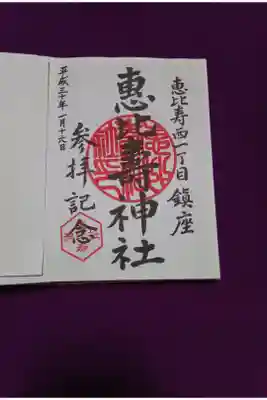 恵比寿西一丁目鎮座
恵比壽神社
参拝記
念
平成三十年一月十六日